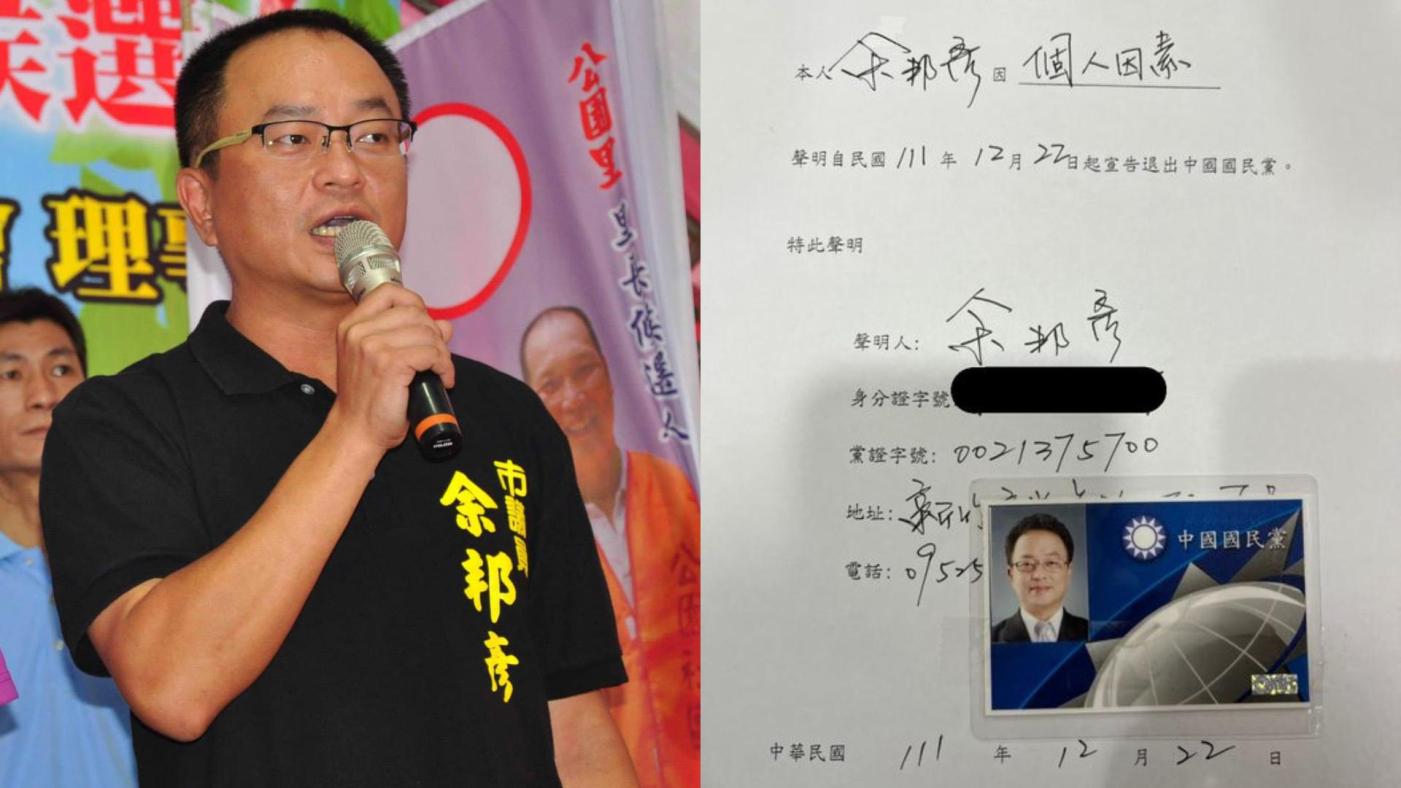 選
公園里
里長候選人
理事
市議員
余邦彥
本人 余邦彥 因 個人因素
聲明自民國 111 年 12 月 22 日起宣告退出中國國民黨。
特此聲明
聲明人: 余邦彥
身分證字號
黨證字號: 0021375700
地址:
電話: 09525
中國國民黨
中華民國 111 年 12 月 22 日